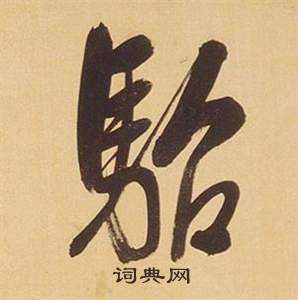 駘
词典网